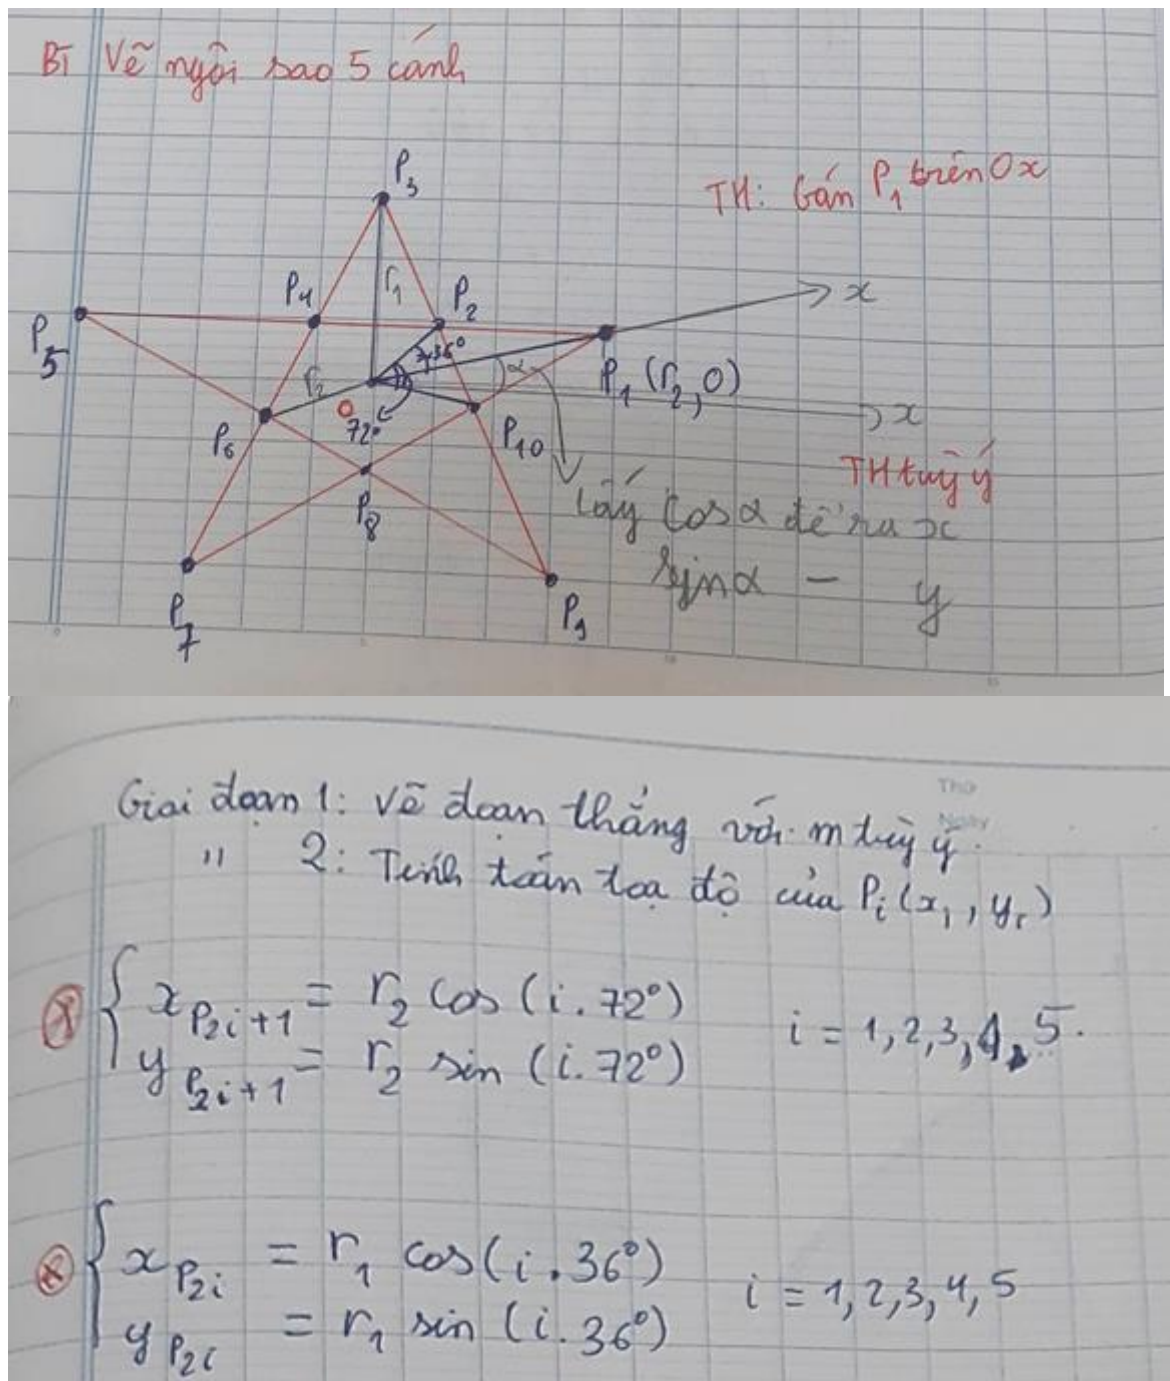 BT Vẽ ngôi sao 5 cánh
P3
TH: Gán P1 trên Ox
r1
P4
P2
x
P5
36°
α
P1 (r2, 0)
r2
O
72°
x
P6
P10
TH tuỳ ý
P8
Lấy cos α để ra x
sin α — y
P7
P9
Thứ
Ngày
Giai đoạn 1: Vẽ đoạn thẳng với m tuỳ ý.
" 2: Tính toán toạ độ của Pi (xi, yi)
x P2i+1 = r2 cos (i. 72°)
y P2i+1 = r2 sin (i. 72°)
i = 1, 2, 3, 4, 5.
x P2i = r1 cos (i. 36°)
y P2i = r1 sin (i. 36°)
i = 1, 2, 3, 4, 5